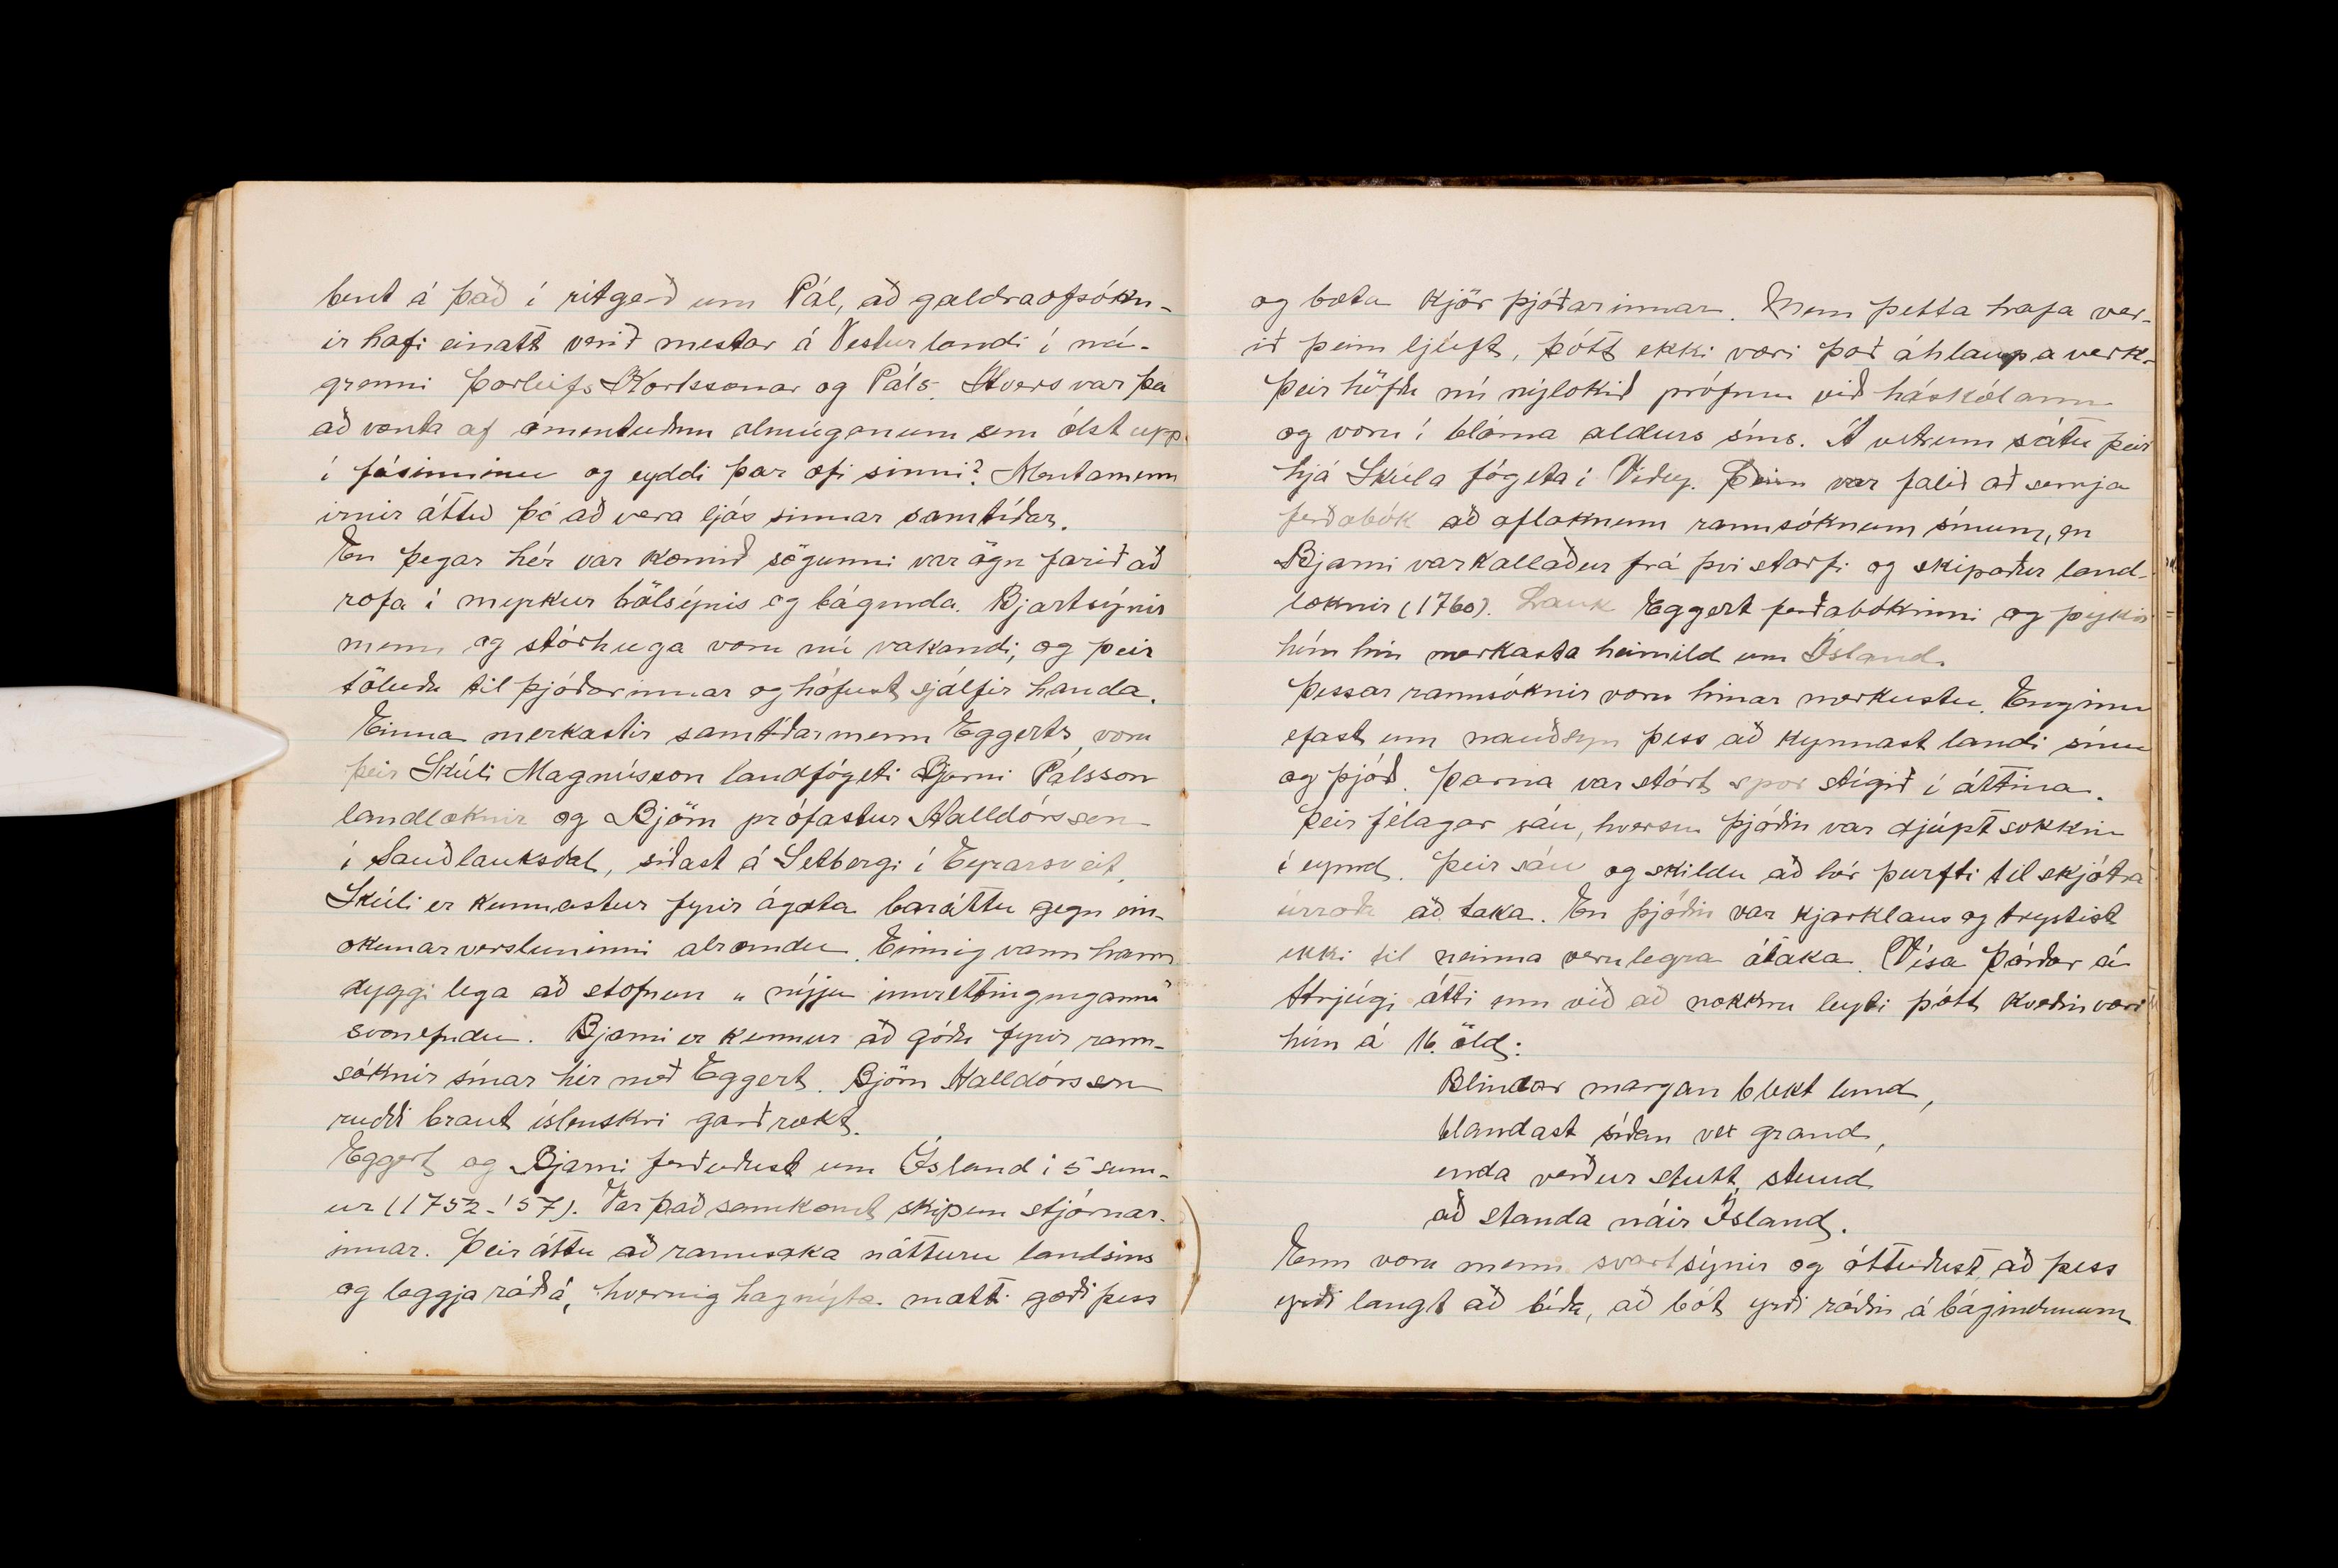 bent á það í ritgerð um Pál, að galdraofsókn-
ir hafi einatt verið mestar á Vesturlandi í ná-
grenni Þorleifs Kortssonar og Páls. Hvers var þá
að vænta af ómentuðum almúganum sem ólst upp
í fásinninu og eyddi þar æfi sinni? Mentamenn
irnir áttu þó að vera ljós sinnar samtíðar.
En þegar hér var komið sögunni var ögn farið að
rofa í myrkur bölsýnis og báginda. Bjartsýnir
menn og stórhuga voru nú vakandi, og þeir
töluðu til þjóðarinnar og hófust sjálfir handa.
Einna merkastir samtíðarmenn Eggerts, voru
þeir Skúli Magnússon landfógeti Bjarni Pálsson
landlæknir og Björn prófastur Halldórsson
í Sauðlauksdal, síðast á Setbergi í Eyrarsveit.
Skúli er kunnastur fyrir ágæta baráttu gegn ein-
okunarversluninni alræmdu. Einnig vann hann
dyggilega að stofnun „nýju innréttinganna"
svonefndu. Bjarni er kunnur að góðu fyrir rann-
sóknir sínar hér með Eggert. Björn Halldórsson
ruddi braut íslenskri garðrækt.
Eggert og Bjarni ferðuðust um Ísland í 5 sum-
ur (1752-'57). Var það samkvæmt skipun stjórnar-
innar. Þeir áttu að rannsaka nátturu landsins
og leggja ráð á, hvernig hagnýta mætti gæði þess
og bæta kjör þjóðarinnar. Mun þetta hafa ver-
ið þeim ljúft, þótt ekki væri það áhlaupaverk.
Þeir höfðu nú nýlokið prófum við háskólann
og voru í blóma aldurs síns. Á vetrum sátu þeir
hjá Skúla fógeta í Viðey. Þeim var falið að semja
ferðabók að afloknum rannsóknum sínum, en
Bjarni var kallaður frá því starfi og skipaður land-
læknir (1760). Lauk Eggert ferðabókinni og þykir
hún hin merkasta heimild um Ísland.
Þessar rannsóknir voru hinar merkustu. Enginn
efast um nauðsyn þess að kynnast landi sínu
og þjóð. Þarna var stórt spor stigið í áttina.
Þeir félagar sáu, hversu þjóðin var djúpt sokkin
í eymd. Þeir sáu og skildu að hér þurfti til skjótra
úrræða að taka. En þjóðin var kjarklaus og treystist
ekki til neinna verulegra átaka. Vísa Þórðar á
Strjúgi átti enn við að nokkru leyti þótt kveðin væri
hún á 16. öld:
Blindar margan blekt lund,
blandast síðan vex grand,
enda verður stutt stund
að standa náir Ísland.
Enn voru menn svartsýnir og óttuðust, að þess
yrði langt að bíða, að bót yrði ráðin á bágindunum